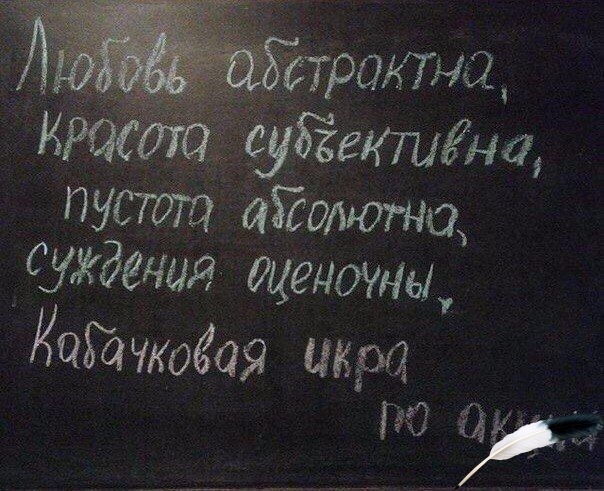 Любовь абстрактна,
красота субъективна,
пустота абсолютна,
суждения оценочны,
Кабачковая икра
по